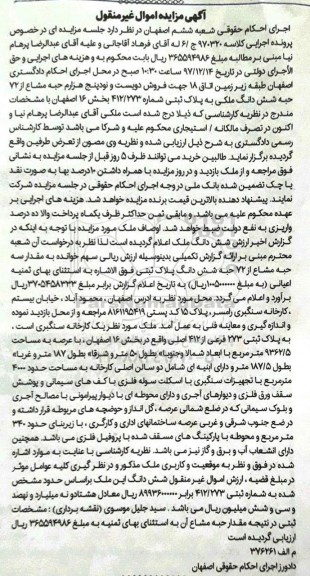 آگهی مزایده اموال غیرمنقول
اجرای احکام حقوقی شعبه ششم اصفهان در نظر دارد جلسه مزایده ای در خصوص
پرونده اجرایی کلاسه ۹۷۰۳۲۰ ج/ ۶ له آقای فرهاد آقاجانی و علیه آقای عبدالرضا پرهام
نیا مبنی بر مطالبه مبلغ ۳۶۵۵۹۴۹۸۶ ریال بابت محکوم به و هزینه های اجرایی و حق
الاجرای دولتی در تاریخ ۹۷/۱۲/۱۴ ساعت ۱۰:۳۰ صبح در محل اجرای احکام دادگستری
اصفهان طبقه زیر زمین اتاق ۱۸ جهت فروش دویست و نودپنج هزارم حبه مشاع از ۷۲
حبه شش دانگ ملکی به پلاک ثبتی شماره ۴۱۲/۲۷۳ بخش ۱۶ اصفهان با مشخصات
مندرج در نظریه کارشناسی که ذیلا درج شده است ملکی آقای عبدالرضا پرهام نیا و
اکنون در تصرف مالکانه / استیجاری محکوم علیه و شرکا می باشد توسط کارشناس
رسمی دادگستری به شرح ذیل ارزیابی شده و نظریه وی مصون از تعرض طرفین واقع
گردیده برگزار نماید. طالبین خرید می توانند ظرف ۵ روز قبل از جلسه مزایده به نشانی
فوق مراجعه و از ملک بازدید و در روز مزایده با همراه داشتن ۱۰درصد بها به صورت نقد
یا چک تضمین شده بانک ملی در وجه اجرای احکام حقوقی در جلسه مزایده شرکت
نمایند. پیشنهاد دهنده بالاترین قیمت برنده مزایده خواهد شد. هزینه های اجرایی بر
عهده محکوم علیه می باشد و مابقی ثمن حداکثر ظرف یکماه پرداخت والا ده درصد
واریزی به نفع دولت ضبط خواهد شد. اوصاف ملک مورد مزایده با توجه به اینکه در
گزارش اخیر ارزش شش دانگ ملک اعلام گردیده است لذا نظر به درخواست آن شعبه
محترم مبنی بر ارائه گزارش تکمیلی بدینوسیله ارزش ریالی سهم خوانده به مقدار سه
حبه مشاع از ۷۲ حبه شش دانگ پلاک ثبتی فوق الاشاره به استثنای بهای ثمنیه
اعیانی (به مبلغ ۱۰۵۰۰۰۰۰۰ریال) به تاریخ اعلام گزارش برابر مبلغ ۳۷۰۵۴۵۸۳۳۳ریال
برآورد و اعلام می گردد. محل مورد نظر به آدرس اصفهان ، محمودآباد ، خیابان بیستم
، کارخانه سنگبری رامسر، پلاک ۷۵ کد پستی ۸۱۶۱۱۹۵۴۱۹ مراجعه و از محل بازدید نموده
و اندازه گیری و معاینه فنی به عمل آمد. ملک مورد نظر یک کارخانه سنگبری است ،
به پلاک ثبتی ۲۷۳ فرعی از ۴۱۲ اصلی واقع در بخش ۱۶ اصفهان، با عرصه به مساحت
۹۳۶۲/۵ متر مربع با ابعاد شمالا وجنوبا» بطول ۵۰ متر و شرقا» بطول ۱۸۷ متر و غربا»
بطول ۱۸۷/۵ متر و دارای ابنیه ای شامل دو سالن اصلی کارخانه به مساحت حدود ۴۰۰۰
مترمربع با تجهیزات سنگبری با اسکلت سوله فلزی با کف های سیمانی و پوشش
سقف ورق فلزی و دیوارهای آجری و دارای محوطه ای با دیوار پیرامونی با مصالح آجری
و بلوک سیمانی که در ضلع شمالی عرصه ، گل انداز و حوضچه های مربوطه قرار داشته و
در ضلع جنوب شرقی و غربی عرصه ساختمانهای اداری و کارگری ، با زیربنای حدود ۳۴۰
متر مربع و محوطه با پارکینگ های مسقف شده با پروفیل فلزی می باشد. همچنین
دارای انشعاب آب و برق و گاز نیز می باشد. نظریه کارشناسی با عنایت به موارد اشاره
شده در فوق و نظر به موقعیت و کاربری ملک مذکور و در نظر گیری کلیه عوامل موثر
در مبلغ قضیه ، ارزش اموال غیر منقول شش دانگ این ملک براساس حدود مشخص
شده به شماره ثبتی ۴۱۲/۲۷۳ برابر ۸۹۹۳۶۰۰۰۰۰۰ ریال معادل هشتادو نه میلیارد و نهصد
و سی و شش میلیون ریال می باشد . سید جلیل موسوی (نقشه برداری) : مشخصات
ثبتی در نتیجه مقدار حبه مشاع آن به استثنای بهای ثمنیه به مبلغ ۳۶۵۵۹۴۹۸۶ ریال
ارزیابی گردیده است
م الف ۳۷۶۲۶۱
دادورز اجرای احکام حقوقی اصفهان